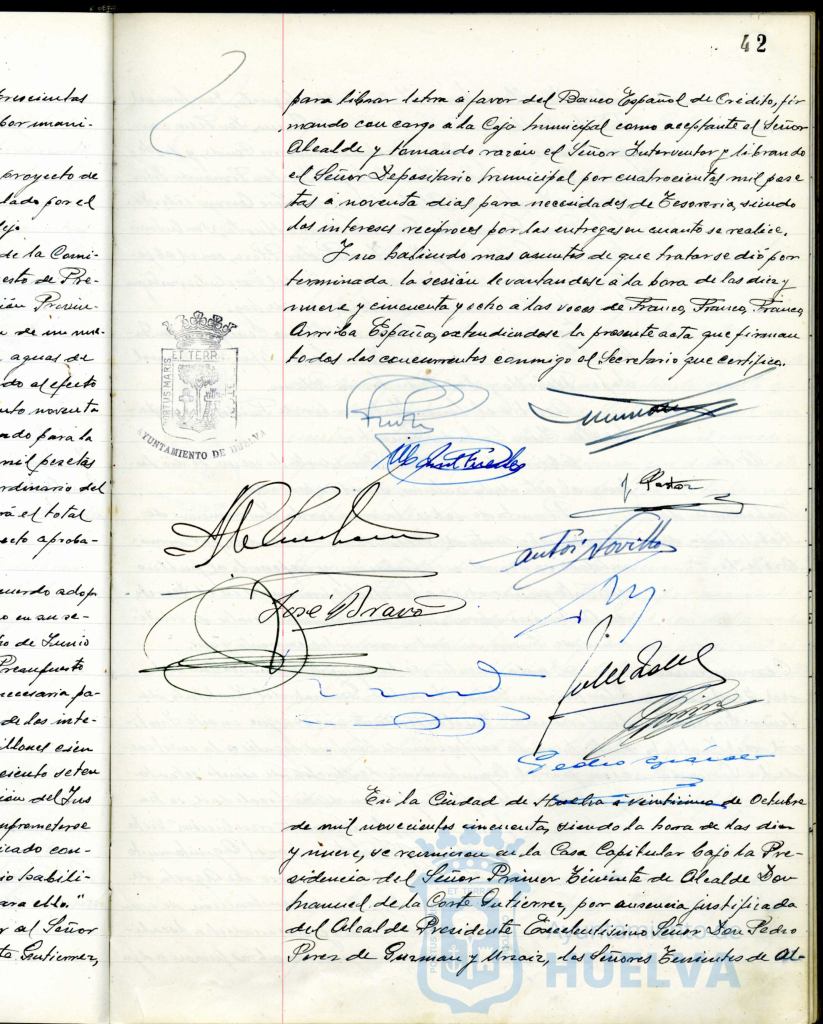 42
rescientas
por unani-
proyecto de
lado por el
ejo
de la Comi-
esto de Pre-
ión Provin-
aguas de
do al efecto
nto noventa
ado para la
mil pesetas
ordinario del
rá el total
ecto aproba-
uerdo adop
o en su se-
de Junio
Presupuesto
necesaria pa-
de los inte-
illones cien
ciento seten
ión del
mprometerse
icado con-
io habili-
ara ello."
r al Señor
te Gutierrez,
para librar letra a favor del Banco Español de Crédito, fir
mando con cargo a la Caja Municipal como aceptante el Señor
Alcalde y tomando razón el Señor Interventor y librando
el Señor Depositario Municipal por cuatrocientas mil pese
tas a noventa dias para necesidades de Tesoreria, siendo
los intereses reciproces por las entregas en cuanto se realice.
Y no habiendo mas asuntos de que tratar se dió por
terminada la sesión levantandose a la hora de las diez y
nueve y cincuenta y ocho a las voces de Franco, Franco, Franco,
Arriba España, extendiendose la presente acta que firman
todos los concurrentes conmigo el Secretario que certifica.
PORTUS MARIS ET TERRE
AYUNTAMIENTO DE HUELVA
J Pastor
Antoº Novillo
José Bravo
Pedro
En la Ciudad de Huelva a veintiuno de Octubre
de mil novecientos cincuenta, siendo la hora de las diez
y nueve, se reunieron en la Casa Capitular bajo la Pre-
sidencia del Señor Primer Teniente de Alcalde Don
Manuel de la Corte Gutierrez, por ausencia justificada
del Alcalde Presidente Excelentisimo Señor Don Pedro
Perez de Guzman y Urzaiz, los Señores Tenientes de Al-
Ayuntamiento de
HUELVA